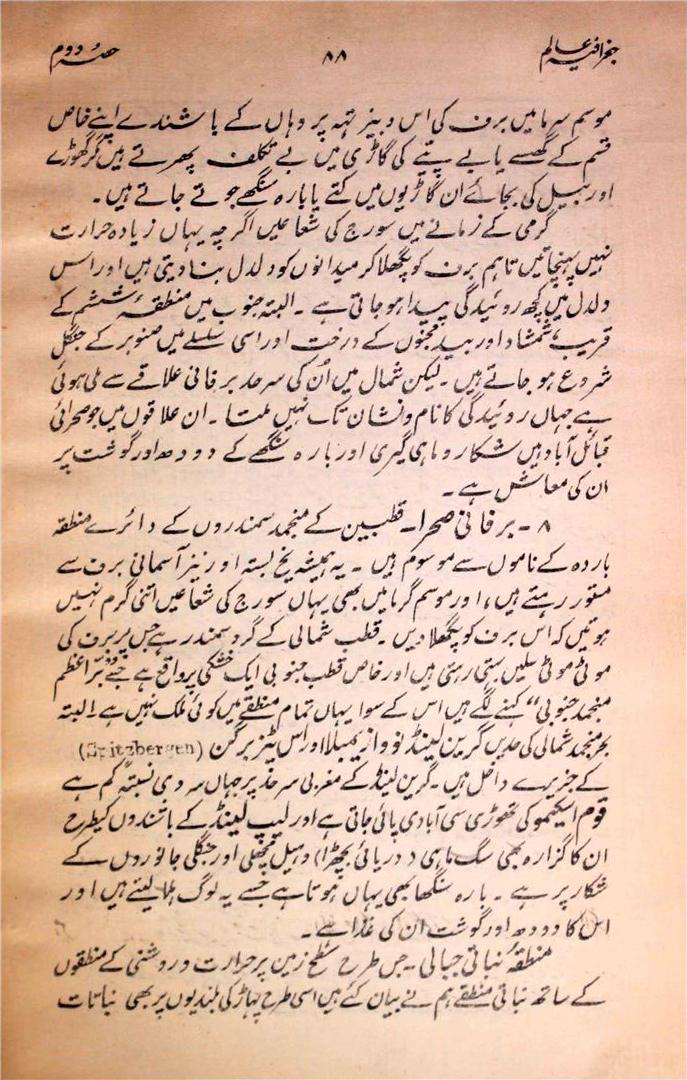 جغرافیہ عالم ۸۸ حصہ دوم
موسم سرما میں برف کی اس دبیز تہہ پر وہاں کے باشندے اپنے خاص
قسم کے گھسے یا بے پہیے کی گاڑی میں بے تکلف پھرتے ہیں مگر گھوڑے
اور بیل کی بجائے ان گاڑیوں میں کتے یا بارہ سنگھے جوتے جاتے ہیں۔
گرمی کے زمانے میں سورج کی شعاعیں اگرچہ یہاں زیادہ حرارت
نہیں پہنچاتیں تاہم برف کو پگھلا کر میدانوں کو دلدل بنا دیتی ہیں اور اس
دلدل میں کچھ روئیدگی پیدا ہو جاتی ہے۔ البتہ جنوب میں منطقۂ ششم کے
قریب، شمشاد اور بید مجنوں کے درخت اور اسی سلسلے میں صنوبر کے جنگل
شروع ہو جاتے ہیں۔ لیکن شمال میں اُن کی سرحد برفانی علاقے سے ملی ہوئی
ہے جہاں روئیدگی کا نام و نشان تک نہیں ملتا۔ ان علاقوں میں جو صحرائی
قبائل آباد ہیں شکار و ماہی گیری اور بارہ سنگھے کے دودھ اور گوشت پر
ان کی معاش ہے۔
۸ - برفانی صحرا۔ قطبین کے منجمد سمندروں کے دائرے منطقہ
باردہ کے ناموں سے موسوم ہیں۔ یہ ہمیشہ یخ بستہ اور نیز آسمانی برف سے
مستور رہتے ہیں، اور موسم گرما میں بھی یہاں سورج کی شعاعیں اتنی گرم نہیں
ہوتیں کہ اس برف کو پگھلا دیں۔ قطب شمالی کے گرد سمندر ہے جس پر برف کی
موٹی موٹی سلیں بہتی رہتی ہیں اور خاص قطب جنوبی ایک خشکی پر واقع ہے جسے "برّاعظم
منجمد جنوبی" کہنے لگے ہیں اس کے سوا یہاں تمام منطقے میں کوئی ملک نہیں ہے البتہ
بحر منجمد شمالی کی حد میں گرین لینڈ نووازیمبلا اور اس پٹز برگن (Spitzbergen)
کے جزیرے داخل ہیں۔ گرین لینڈ کے مغربی سرحد پر جہاں سردی نسبتہً کم ہے
قوم اسکیمو کی تھوڑی سی آبادی پائی جاتی ہے اور لیپ لینڈ کے باشندوں کیطرح
ان کا گزارہ بھی سگ ماہی (دریائی بچھڑا) وہیل مچھلی اور جنگلی جانوروں کے
شکار پر ہے۔ بارہ سنگھا بھی یہاں ہوتا ہے جسے یہ لوگ ہلا لیتے ہیں اور
اس کا دودھ اور گوشت ان کی غذا ہے۔
منطقۂ نباتی جبالی۔ جس طرح سطح زمین پر حرارت و روشنی کے منطقوں
کے ساتھ نباتی منطقے ہم نے بیان کئے ہیں اسی طرح پہاڑ کی بلندیوں پر بھی نباتات